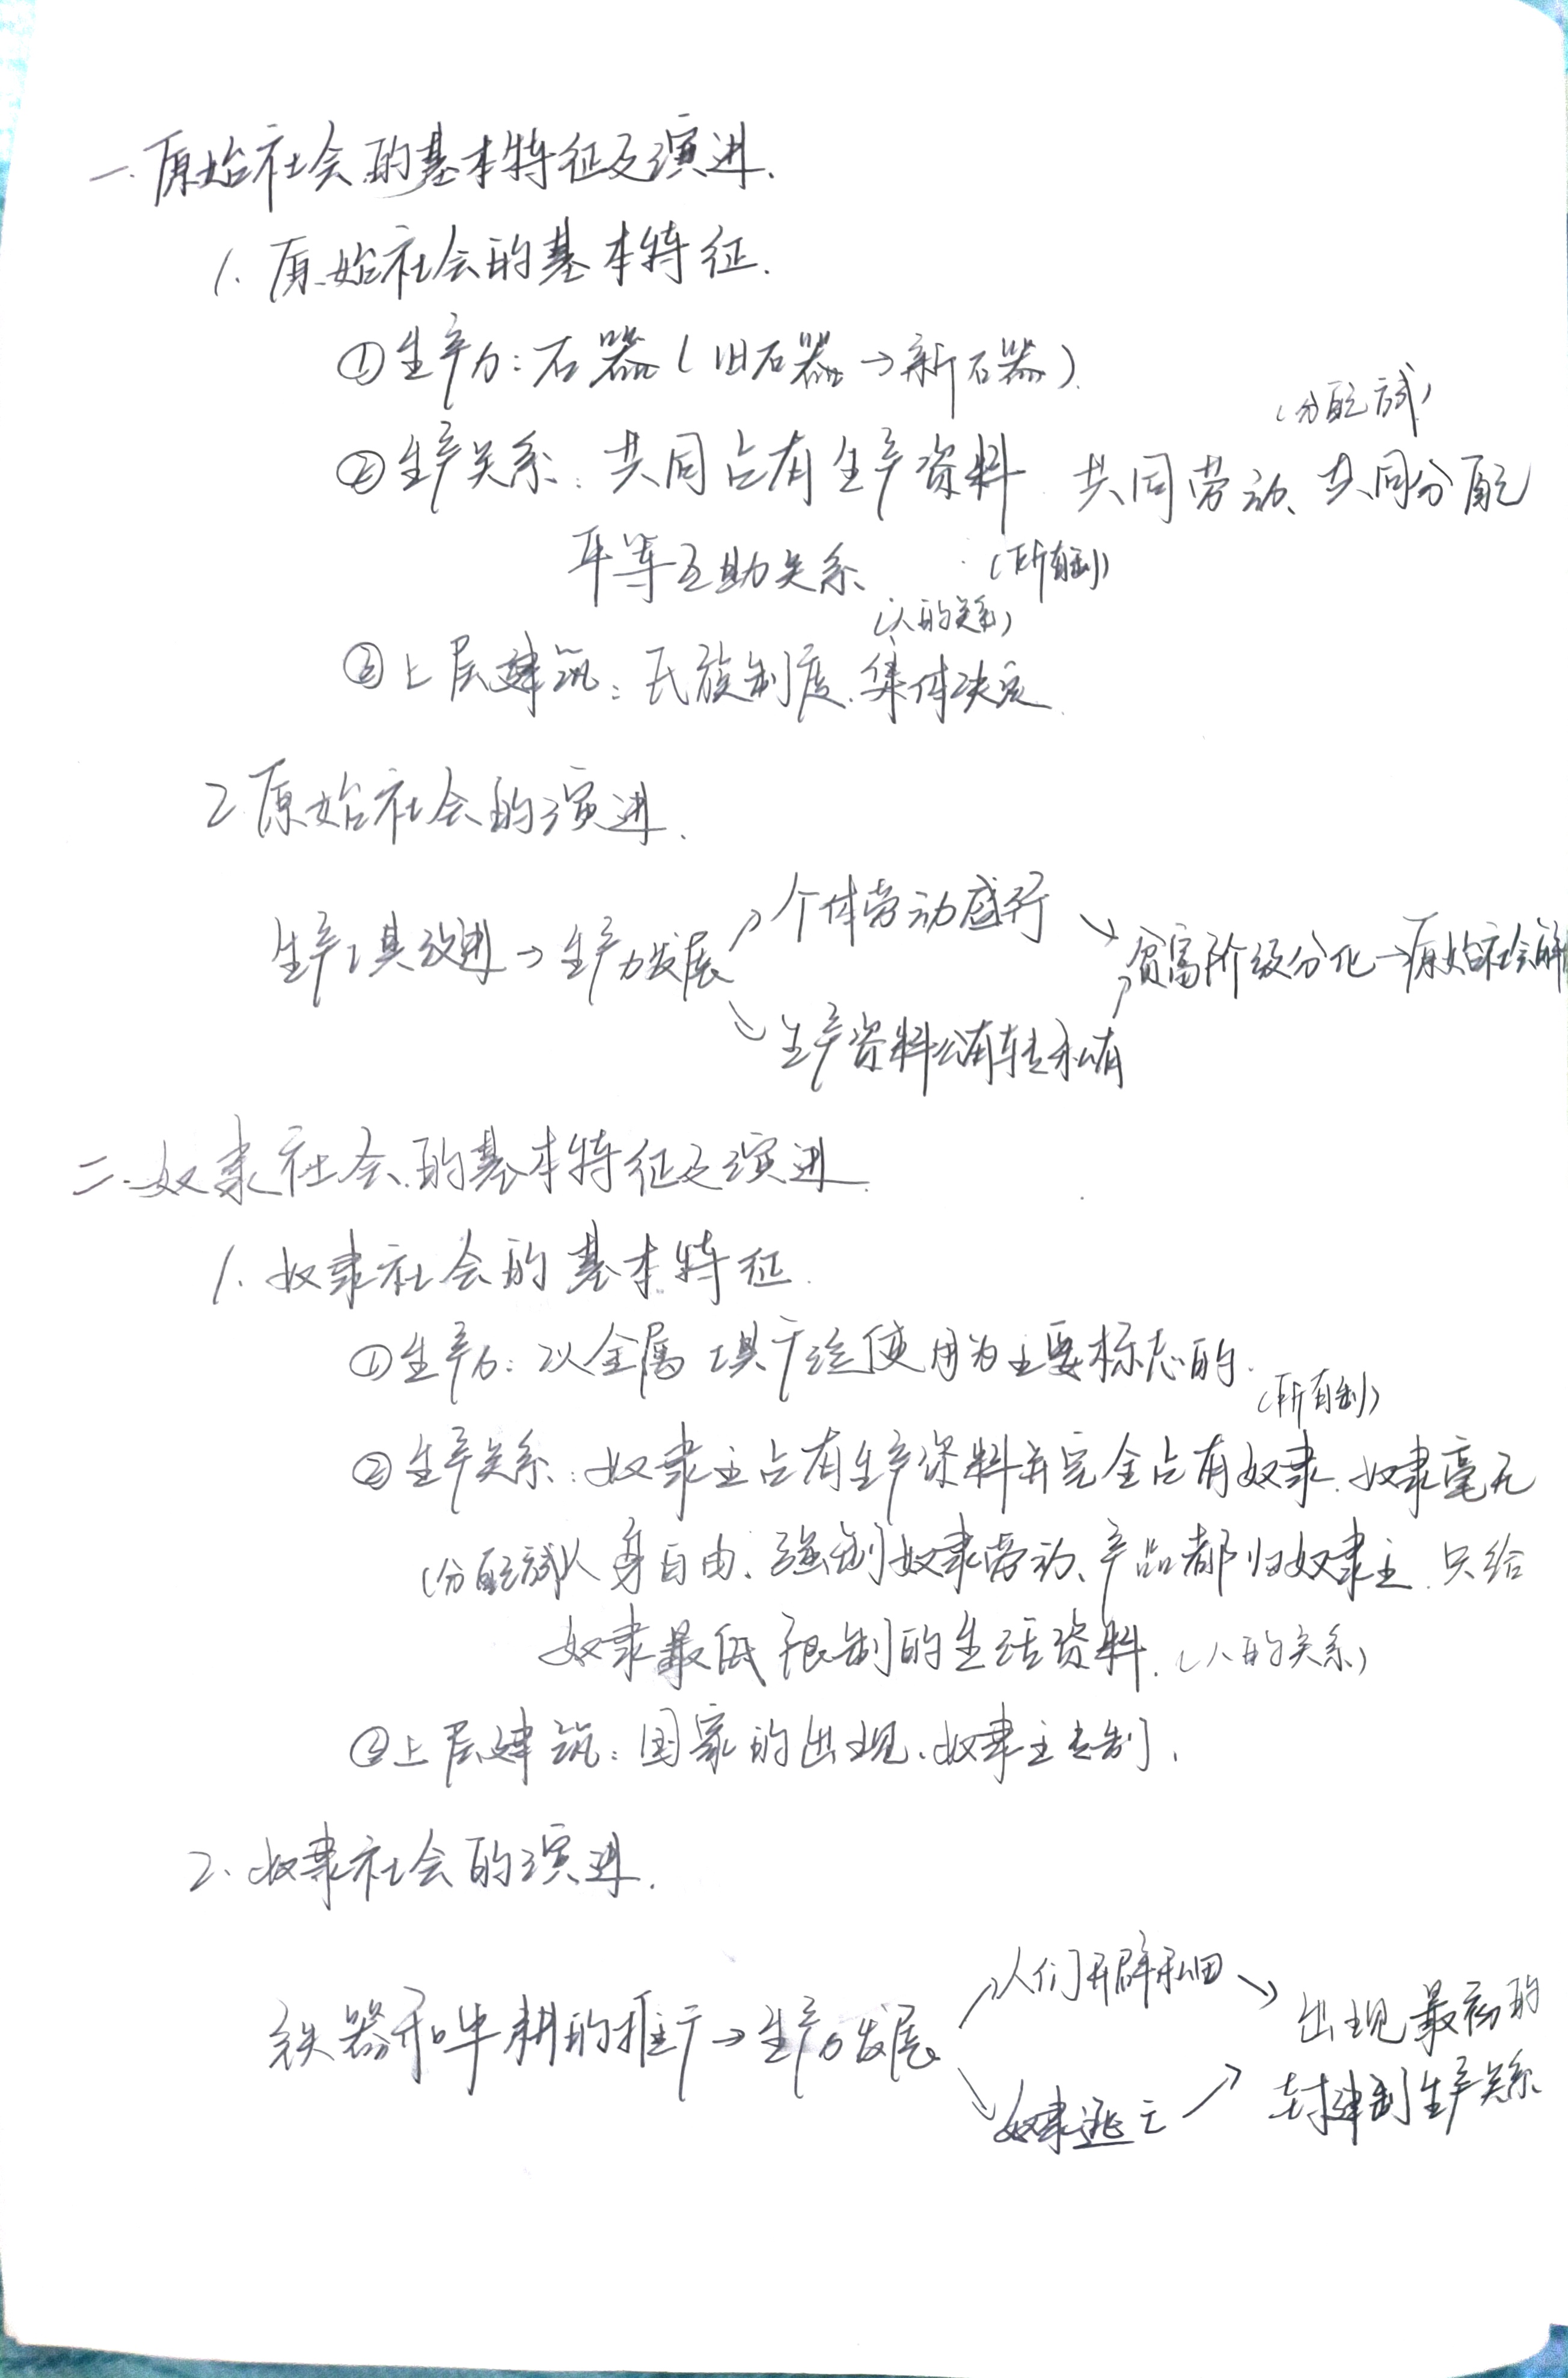 一.原始社会的基本特征及演进.
1.原始社会的基本特征.
①生产力:石器(旧石器→新石器).
(分配方式)
②生产关系:共同占有生产资料 共同劳动、共同分配
平等互助关系、 (所有制)
(人的关系)
③上层建筑:氏族制度、集体决定.
2原始社会的演进.
个体劳动盛行
生产工具改进→生产力发展 ↗ ↘ 贫富阶级分化→原始社会解
↘ 生产资料公有转私有 ↗
二.奴隶社会的基本特征及演进.
1.奴隶社会的基本特征.
①生产力:以金属工具广泛使用为主要标志的.
(所有制)
②生产关系:奴隶主占有生产资料并完全占有奴隶.奴隶毫无
(分配方式)人身自由、强制奴隶劳动、产品都归奴隶主.只给
奴隶最低限制的生活资料.(人的关系)
③上层建筑:国家的出现、奴隶主专制.
2.奴隶社会的演进.
↗人们开辟私田↘
铁器和牛耕的推广→生产力发展 出现最初的
封建制生产关系
↘奴隶逃亡↗